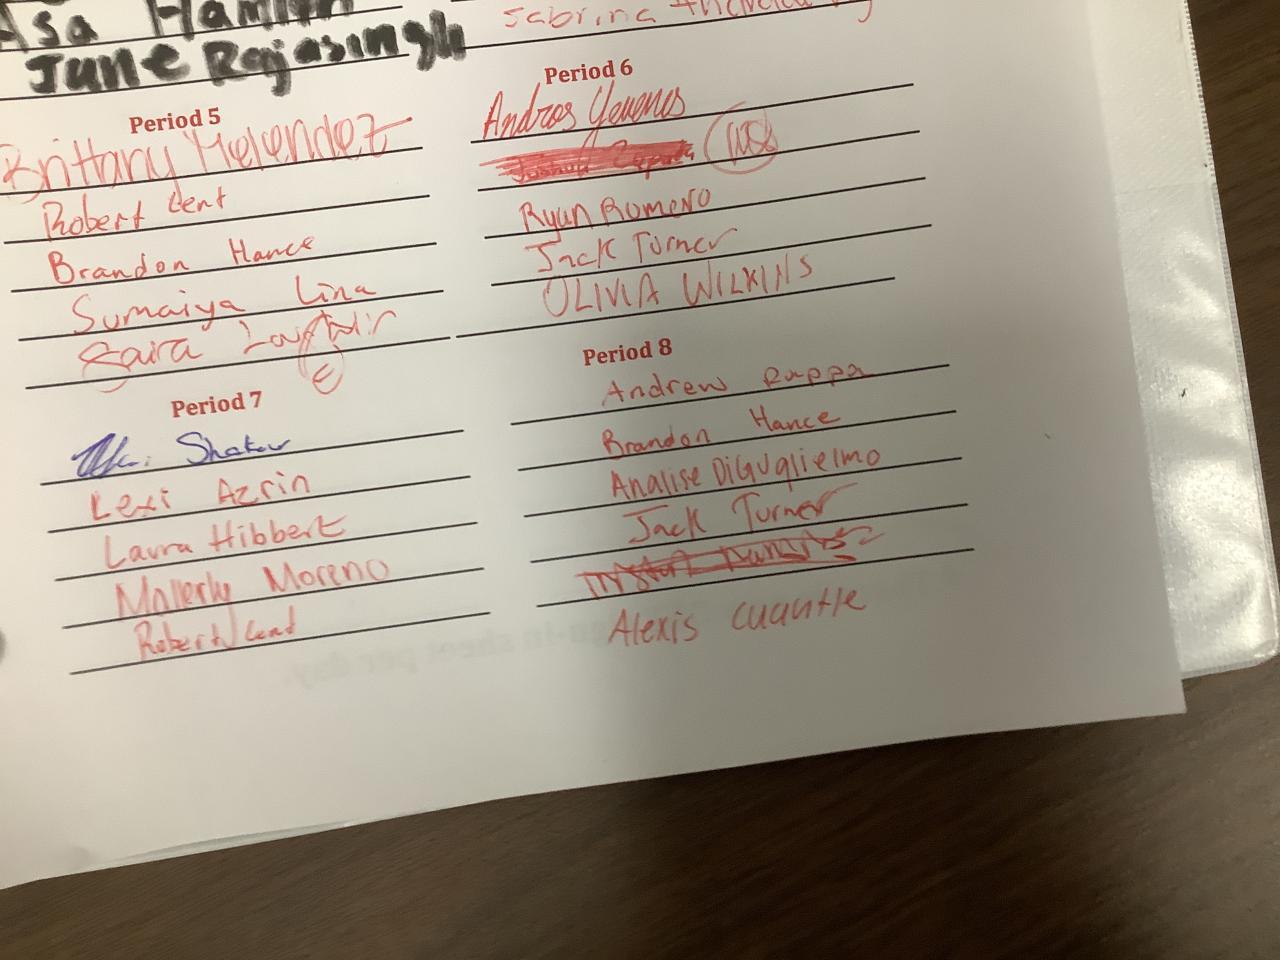 Asa Hamlin
June Rajasingh
Sabrina
Period 5
Brittany Melendez
Robert Lent
Brandon Hance
Sumaiya Lina
Saira
Period 6
Andros
Ryan Romero
Jack Turner
OLIVIA WILKINS
Period 7
Lexi Azrin
Laura Hibbert
Mallerly Moreno
Robert Lent
Period 8
Andrew Rappa
Brandon Hance
Analise DiGuglielmo
Jack Turner
Alexis Cuautle
sign-in sheet per day.